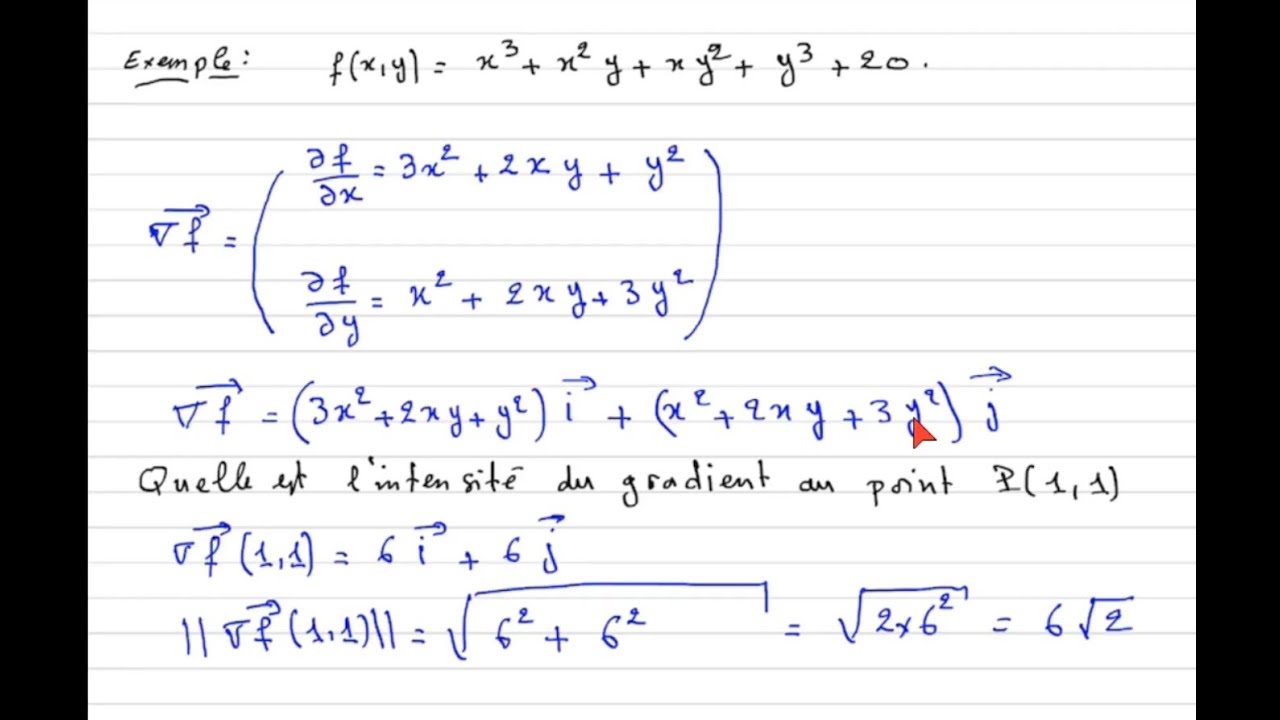 Exemple: f(x,y) = x³ + x² y + x y² + y³ + 20.
∂f/∂x = 3x² + 2x y + y²
∇f⃗ =
∂f/∂y = x² + 2x y + 3y²
∇f⃗ = (3x² + 2xy + y²) i⃗ + (x² + 2x y + 3y²) j⃗
Quelle est l'intensité du gradient au point P(1,1)
∇f⃗ (1,1) = 6 i⃗ + 6 j⃗
||∇f⃗ (1,1)|| = √(6² + 6²) = √(2×6²) = 6√2